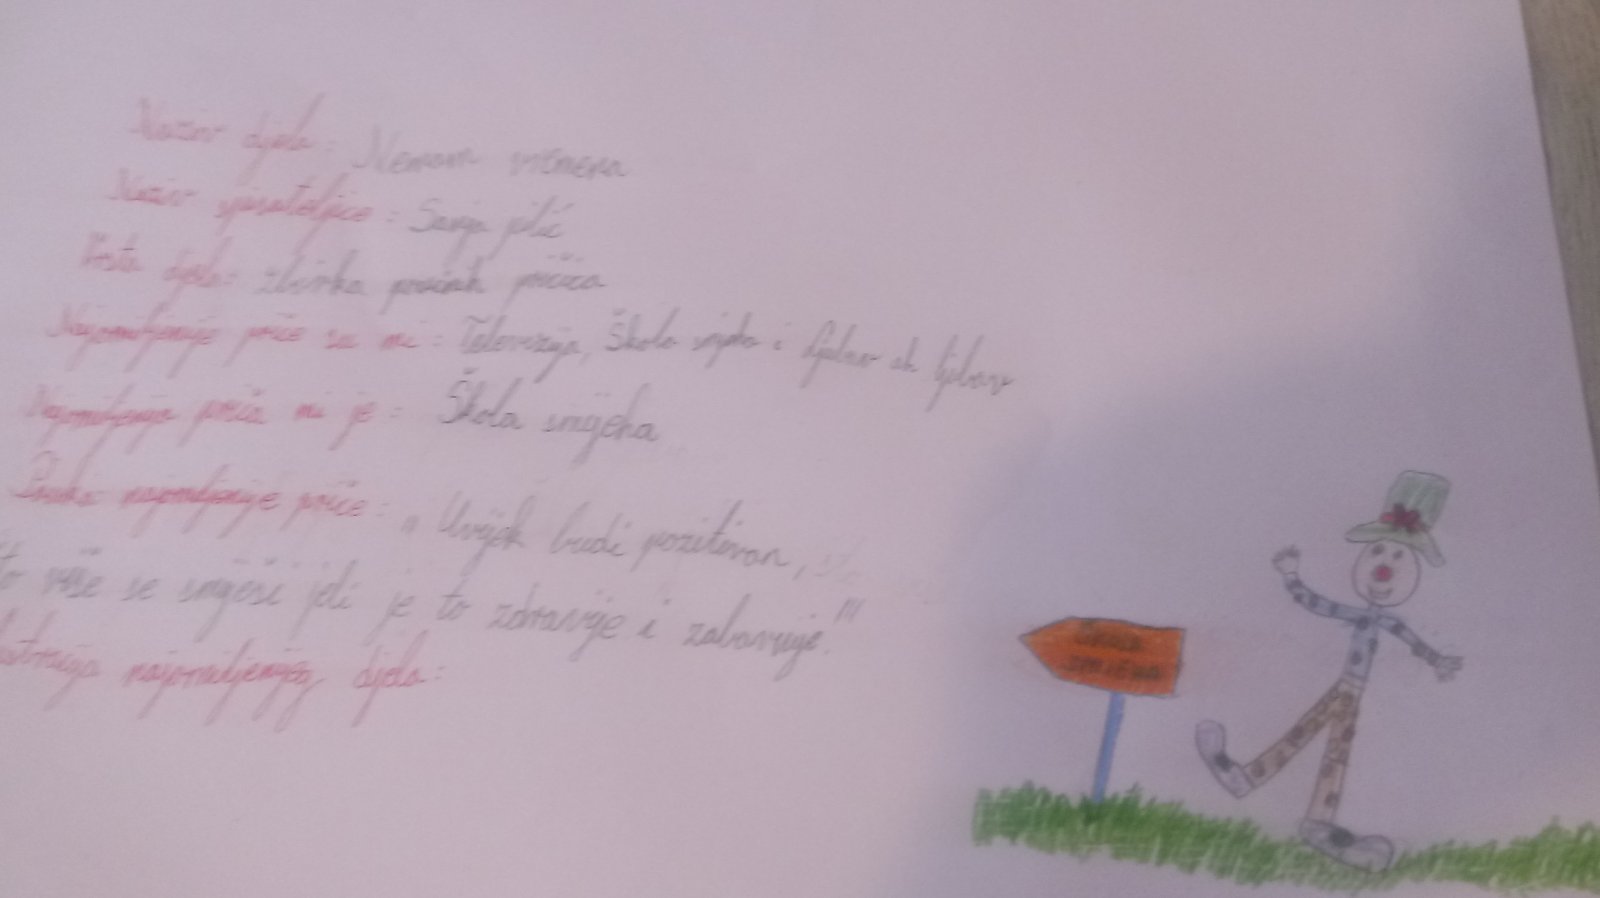 Naziv djela: Nemam vremena
Naziv spisateljice: Sanja pilić
Vrsta djela: zbirka pričica
Najomiljenije priče za mi: Televizija, Škola i ljubav
Najomiljenija priča mi je: Škola smijeha
najomiljenije priče: „Uvijek budi pozitivan,
to više se smješi jeli je to zdravije i zabavnije."!!
najomiljenijeg djela:
ŠKOLA
SMIJEHA